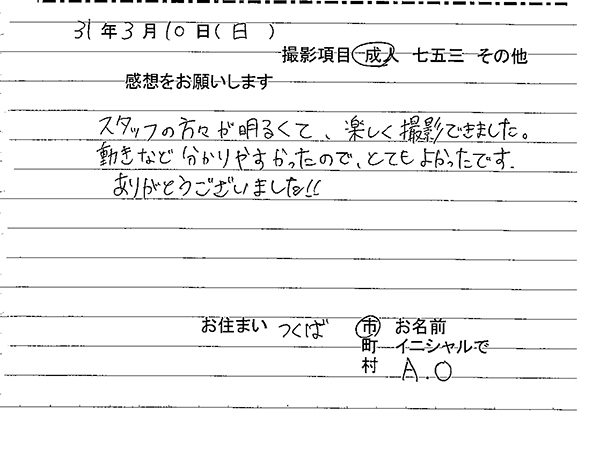 31年3月10日(日)
撮影項目 成人 七五三 その他
感想をお願いします
スタッフの方々が明るくて、楽しく撮影できました。
動きなど分かりやすかったので、とてもよかったです.
ありがとうございました!!
お住まい つくば 市 お名前
町 イニシャルで
村 A.O